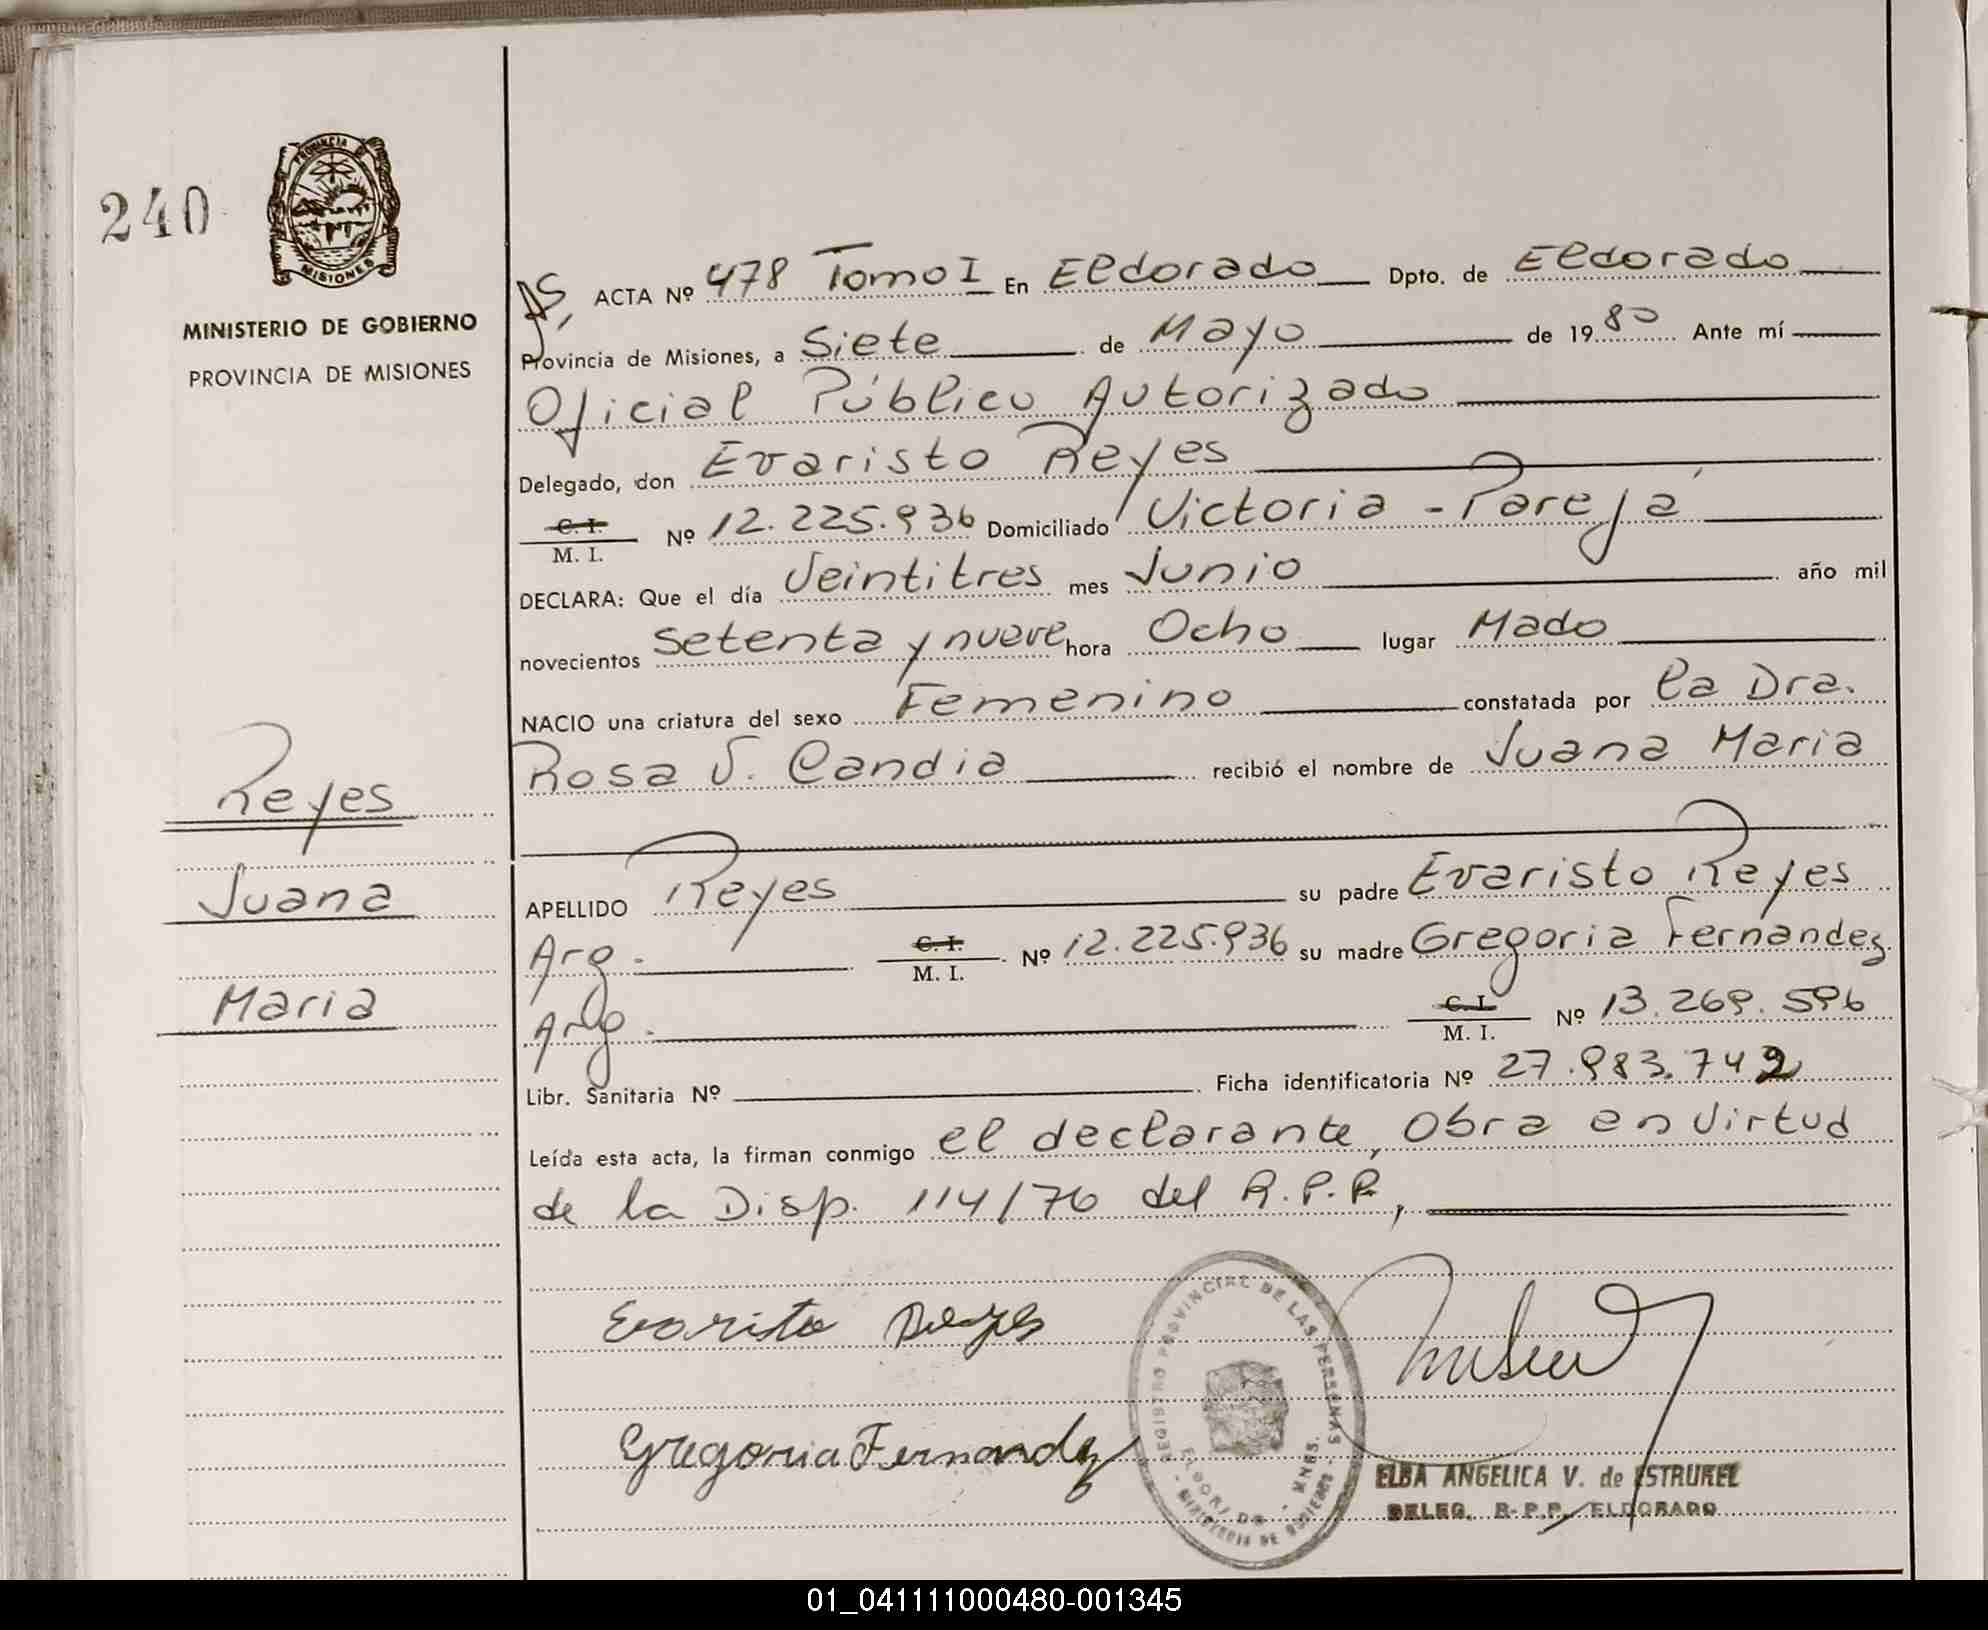 240
PROVINCIA DE
MISIONES
MINISTERIO DE GOBIERNO
PROVINCIA DE MISIONES
Reyes
Juana
Maria
ACTA Nº 478 Tomo I En Eldorado Dpto. de Eldorado
Provincia de Misiones, a Siete de Mayo de 1980 Ante mí
Oficial Público Autorizado
Delegado, don Evaristo Reyes
C. I.
M. I. Nº 12.225.936 Domiciliado Victoria - Pareja
DECLARA: Que el día Veintitres mes Junio año mil
novecientos setenta y nueve hora Ocho lugar Mado
NACIO una criatura del sexo Femenino constatada por la Dra.
Rosa V. Candia recibió el nombre de Juana Maria
APELLIDO Reyes su padre Evaristo Reyes
Arg. C. I.
M. I. Nº 12.225.936 su madre Gregoria Fernandez
Arg. C. I.
M. I. Nº 13.269.596
Libr. Sanitaria Nº Ficha identificatoria Nº 27.983.742
Leída esta acta, la firman conmigo el declarante, Obra en virtud
de la Disp. 114/76 del R.P.P,
Evaristo Reyes
Gregoria Fernandez
REGISTRO PROVINCIAL DE LAS PERSONAS
ELDORADO - MNES.
MINISTERIO DE GOBIERNO
ELBA ANGELICA V. de ESTRUREL
DELEG. R-P.P. ELDORADO
01_041111000480-001345